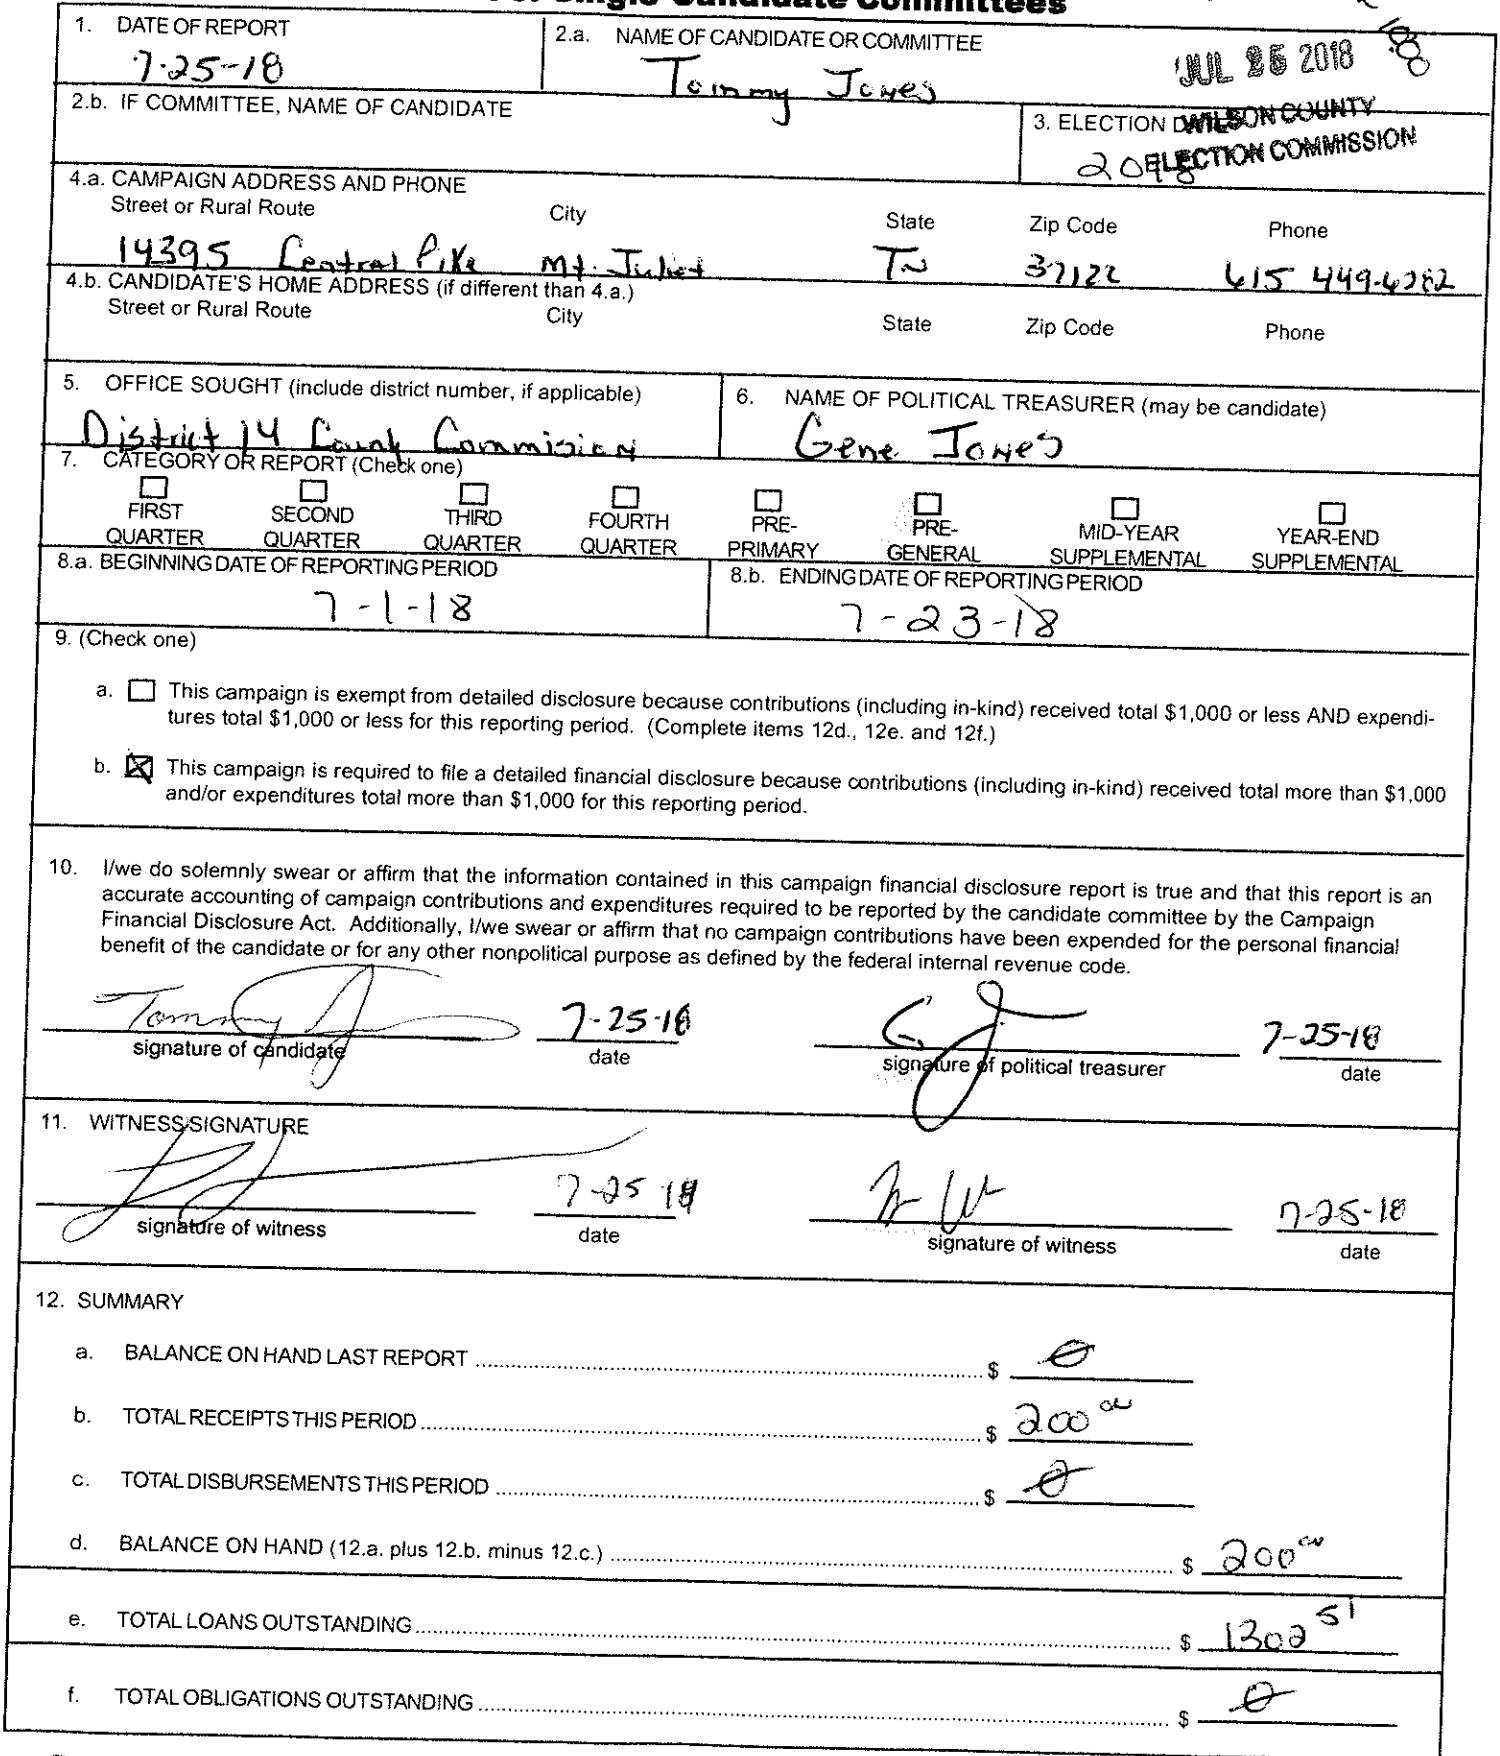 Single Candidate Committees
1. DATE OF REPORT
7-25-18
2.a. NAME OF CANDIDATE OR COMMITTEE
Tommy Jones
JUL 25 2018
2.b. IF COMMITTEE, NAME OF CANDIDATE
3. ELECTION
WILSON COUNTY
ELECTION COMMISSION
4.a. CAMPAIGN ADDRESS AND PHONE
Street or Rural Route City State Zip Code Phone
14395 Central Pike Mt. Juliet TN 37122 615 449-6282
4.b. CANDIDATE'S HOME ADDRESS (if different than 4.a.)
Street or Rural Route City State Zip Code Phone
5. OFFICE SOUGHT (include district number, if applicable)
District 14 County Commision
6. NAME OF POLITICAL TREASURER (may be candidate)
Gene Jones
7. CATEGORY OR REPORT (Check one)
FIRST QUARTER
SECOND QUARTER
THIRD QUARTER
FOURTH QUARTER
PRE-PRIMARY
PRE-GENERAL
MID-YEAR SUPPLEMENTAL
YEAR-END SUPPLEMENTAL
8.a. BEGINNING DATE OF REPORTING PERIOD
7-1-18
8.b. ENDING DATE OF REPORTING PERIOD
7-23-18
9. (Check one)
a. This campaign is exempt from detailed disclosure because contributions (including in-kind) received total $1,000 or less AND expendi-
tures total $1,000 or less for this reporting period. (Complete items 12d., 12e. and 12f.)
b. This campaign is required to file a detailed financial disclosure because contributions (including in-kind) received total more than $1,000
and/or expenditures total more than $1,000 for this reporting period.
10. I/we do solemnly swear or affirm that the information contained in this campaign financial disclosure report is true and that this report is an
accurate accounting of campaign contributions and expenditures required to be reported by the candidate committee by the Campaign
Financial Disclosure Act. Additionally, I/we swear or affirm that no campaign contributions have been expended for the personal financial
benefit of the candidate or for any other nonpolitical purpose as defined by the federal internal revenue code.
Tommy J 7-25-18 G J 7-25-18
signature of candidate date signature of political treasurer date
11. WITNESS SIGNATURE
7-25-18 7-25-18
signature of witness date signature of witness date
12. SUMMARY
a. BALANCE ON HAND LAST REPORT $ 0
b. TOTAL RECEIPTS THIS PERIOD $ 200 00
c. TOTAL DISBURSEMENTS THIS PERIOD $ 0
d. BALANCE ON HAND (12.a. plus 12.b. minus 12.c.) $ 200 00
e. TOTAL LOANS OUTSTANDING $ 1302 51
f. TOTAL OBLIGATIONS OUTSTANDING $ 0